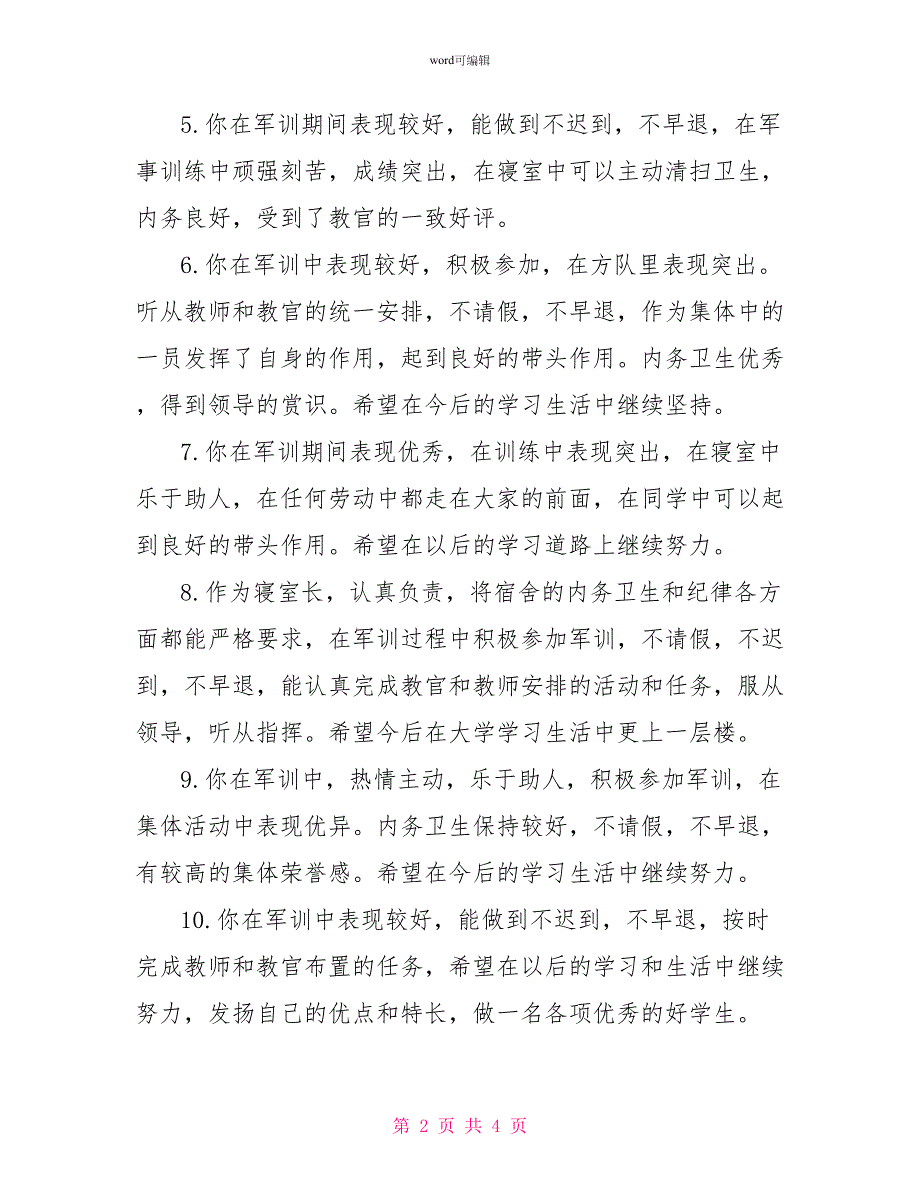 word可编辑
5.你在军训期间表现较好，能做到不迟到，不早退，在军
事训练中顽强刻苦，成绩突出，在寝室中可以主动清扫卫生，
内务良好，受到了教官的一致好评。
6.你在军训中表现较好，积极参加，在方队里表现突出。
听从教师和教官的统一安排，不请假，不早退，作为集体中的
一员发挥了自身的作用，起到良好的带头作用。内务卫生优秀
，得到领导的赏识。希望在今后的学习生活中继续坚持。
7.你在军训期间表现优秀，在训练中表现突出，在寝室中
乐于助人，在任何劳动中都走在大家的前面，在同学中可以起
到良好的带头作用。希望在以后的学习道路上继续努力。
8.作为寝室长，认真负责，将宿舍的内务卫生和纪律各方
面都能严格要求，在军训过程中积极参加军训，不请假，不迟
到，不早退，能认真完成教官和教师安排的活动和任务，服从
领导，听从指挥。希望今后在大学学习生活中更上一层楼。
9.你在军训中，热情主动，乐于助人，积极参加军训，在
集体活动中表现优异。内务卫生保持较好，不请假，不早退，
有较高的集体荣誉感。希望在今后的学习生活中继续努力。
10.你在军训中表现较好，能做到不迟到，不早退，按时
完成教师和教官布置的任务，希望在以后的学习和生活中继续
努力，发扬自己的优点和特长，做一名各项优秀的好学生。
第 2 页 共 4 页